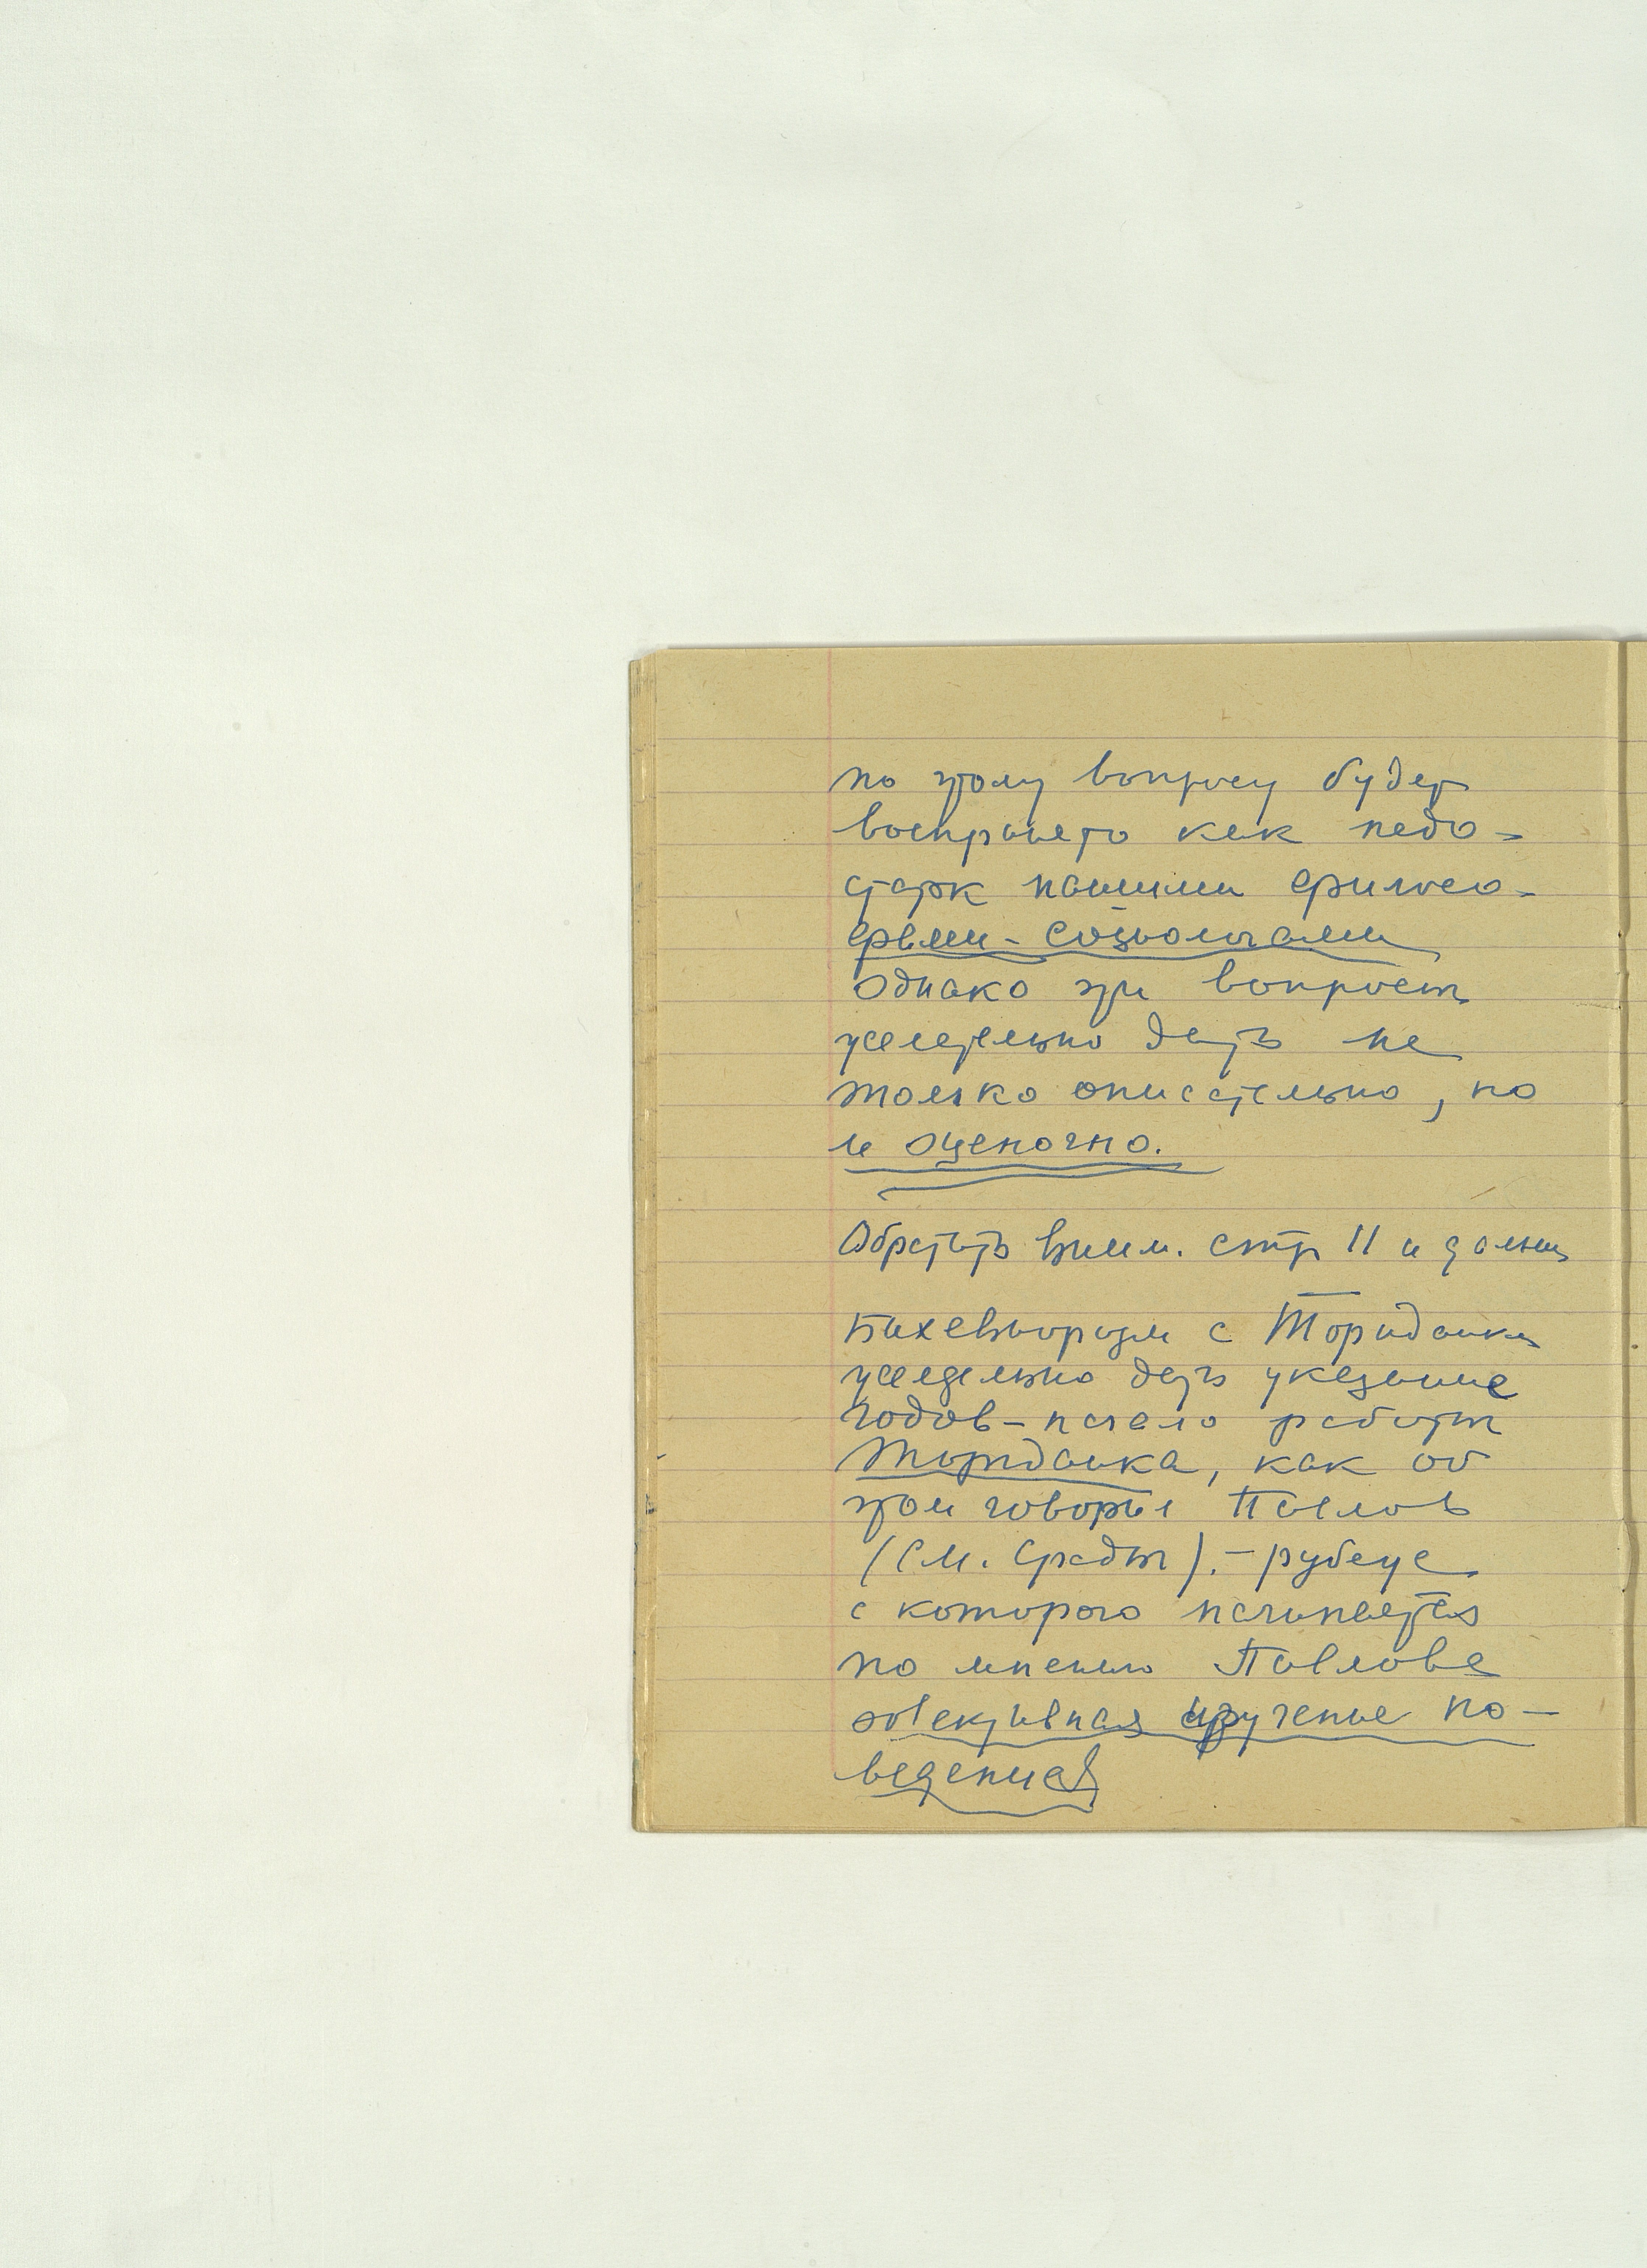 по этому вопросу будет
воспринято как недо-
статок нашими филосо-
фами-социологами
Однако эти вопросы
желательно дать не
только описательно, но
и оценочно.
Обратить вним. стр 11 и дальш
Бихевиоризм с Торндайка
желательно дать указание
годов - начало работы
Торндайка, как об
этом говорил Павлов
(См. Среды). - рубеже
с которого начинается
по мнению Павлова
объективная изучение по-
ведения